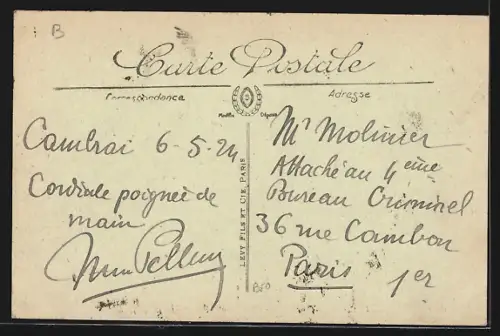 B
Carte Postale
Correspondance
Adresse
Modèle Déposé
Cambrai 6-5-24
Cordiale poignée de
main
LEVY FILS ET CIE, PARIS
Mr Molinier
Attaché au 4eme
Bureau Criminel
36 rue Cambon
Paris 1er